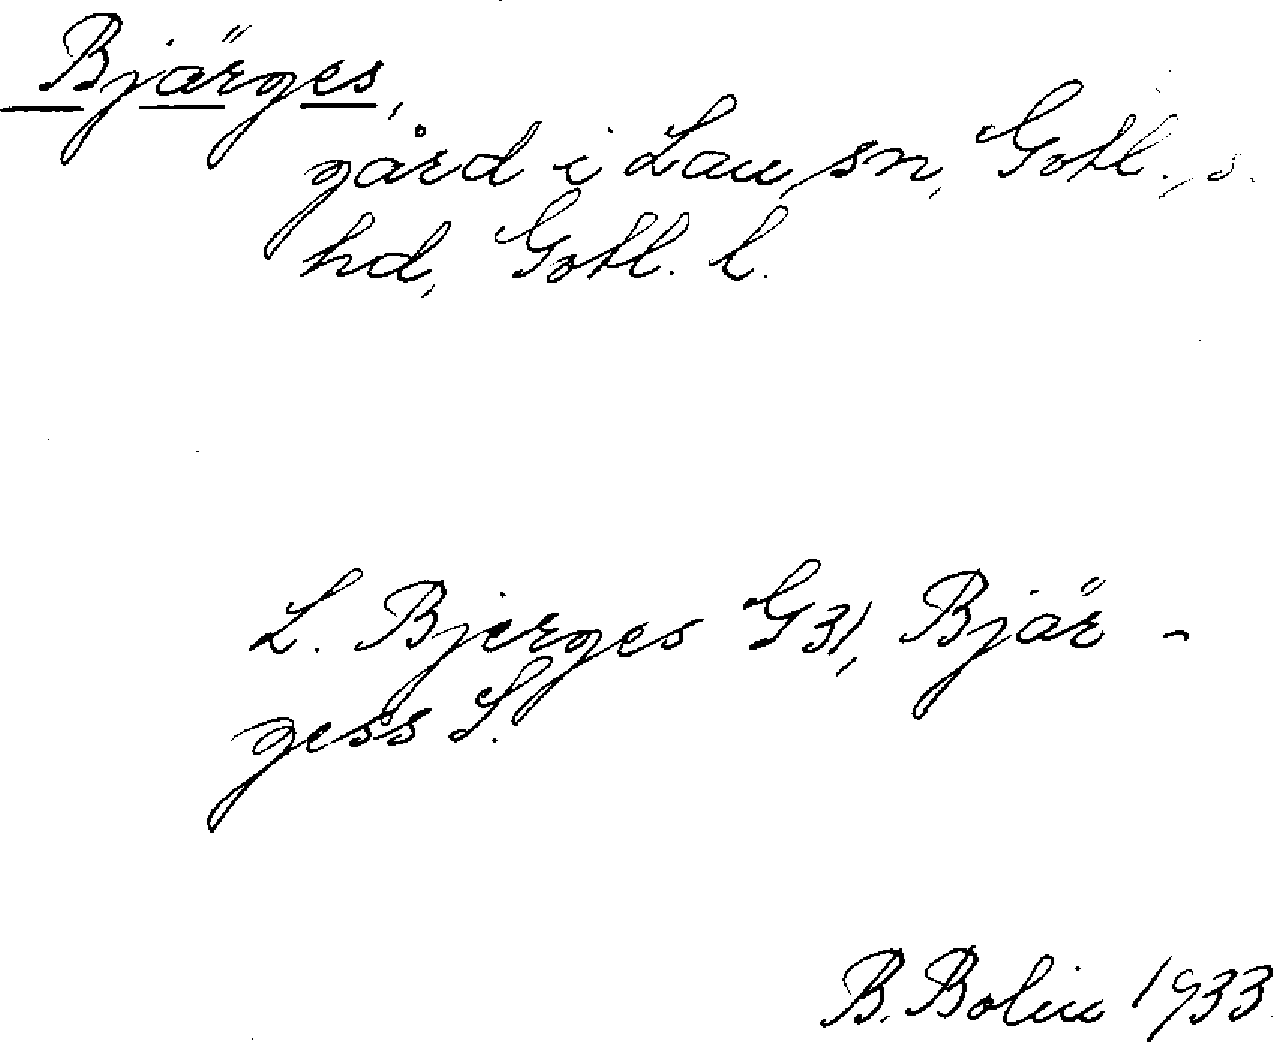 Bjärges,
gård i Lau sn, Gotl., s.
hd, Gotl. l.
L. Bjerges G31, Bjär-
gess S.
B. Bolin 1933.